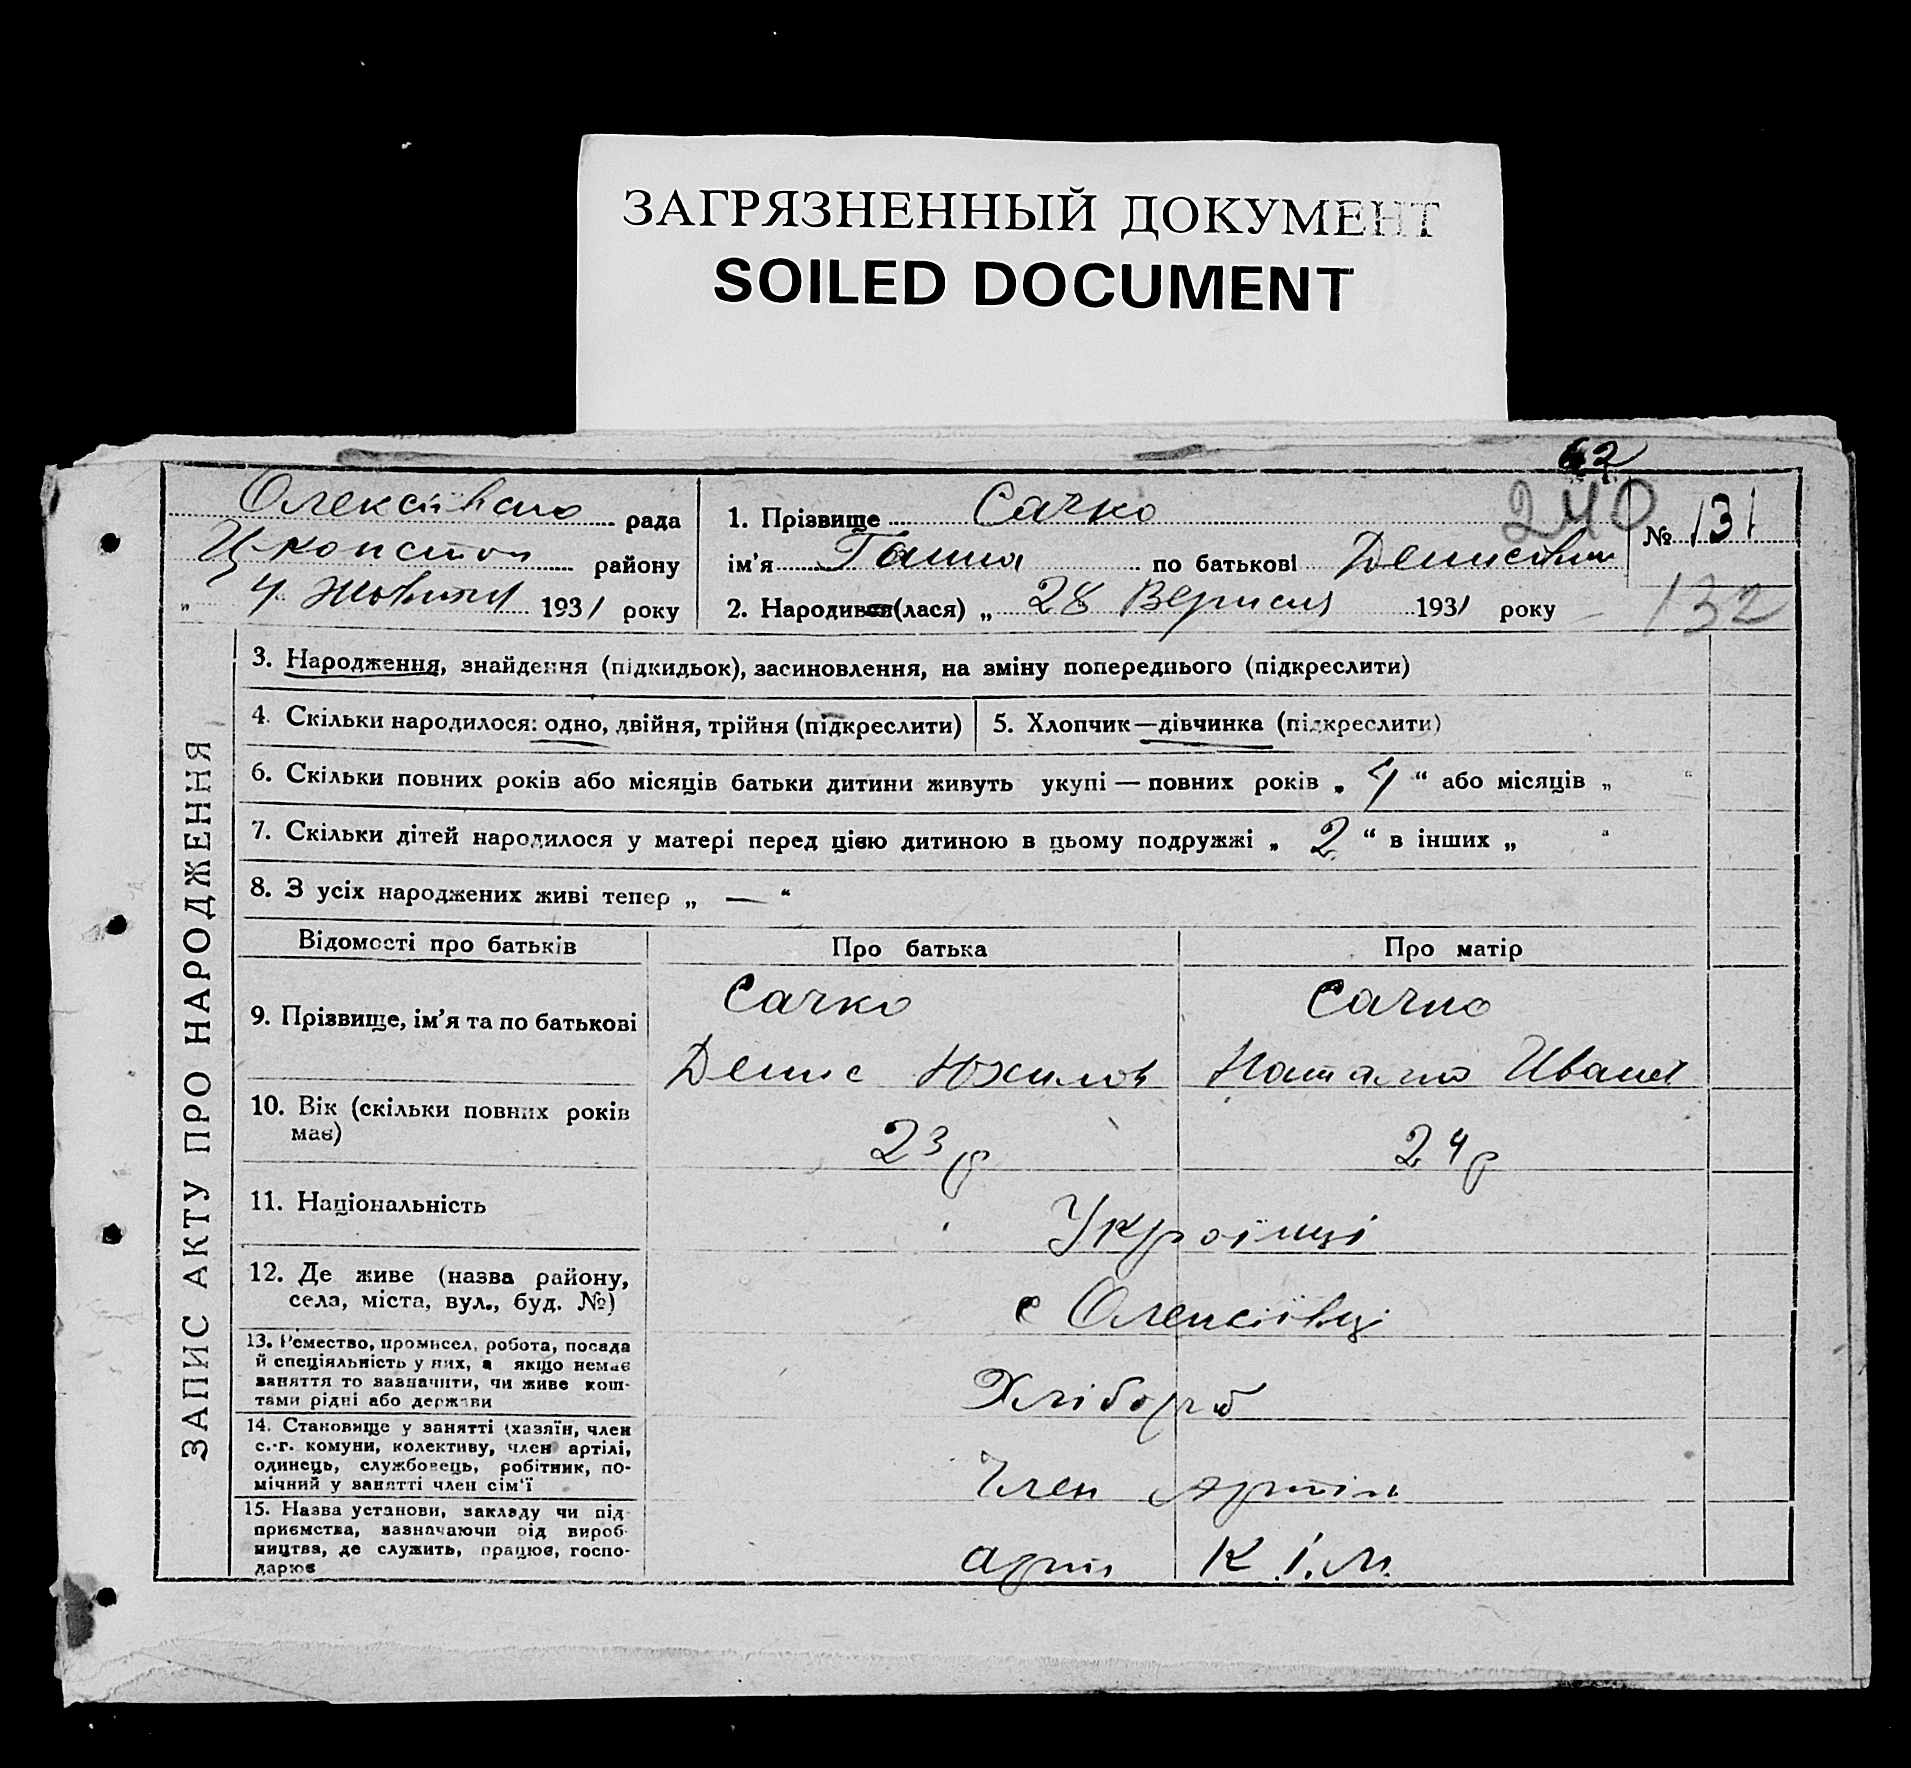 ЗАГРЯЗНЕННЫЙ ДОКУМЕНТ
SOILED DOCUMENT
62
240
Олексіївсько рада
району
„ 4 Жовтня 1931 року
1. Прізвище Сачко
№ 131
ім'я Ганна по батькові Денисівни
2. Народився (лася) „ 28 Вересня 1931 року
132
ЗАПИС АКТУ ПРО НАРОДЖЕННЯ
3. Народження, знайдення (підкидьок), засиновлення, на зміну попереднього (підкреслити)
4. Скільки народилося: одно, двійня, трійня (підкреслити)
5. Хлопчик—дівчинка (підкреслити)
6. Скільки повних років або місяців батьки дитини живуть укупі — повних років „ 4 “ або місяців „ “
7. Скільки дітей народилося у матері перед цією дитиною в цьому подружжі „ 2 “ в інших „ “
8. З усіх народжених живі тепер „ — “
Відомості про батьків
Про батька
Про матір
9. Прізвище, ім'я та по батькові
Сачко
Денис Юхимов
Сачко
Наталя Іванів
10. Вік (скільки повних років
має)
23 р
24 р
11. Національність
Українці
12. Де живе (назва району,
села, міста, вул., буд. №)
с Олексіївці
13. Ремество, промисел, робота, посада
й спеціяльність у них, а якщо немає
заняття то зазначити, чи живе кош-
тами рідні або держави
Хлібороб
14. Становище у занятті (хазяїн, член
с.-г. комуни, колективу, член артілі,
одинець, службовець, робітник, по-
мічний у занятті член сім'ї
Член артіль
15. Назва установи, закладу чи під-
приємства, зазначаючи рід вироб-
ництва, де служить, працює, госпо-
дарює
арт К.І.М.